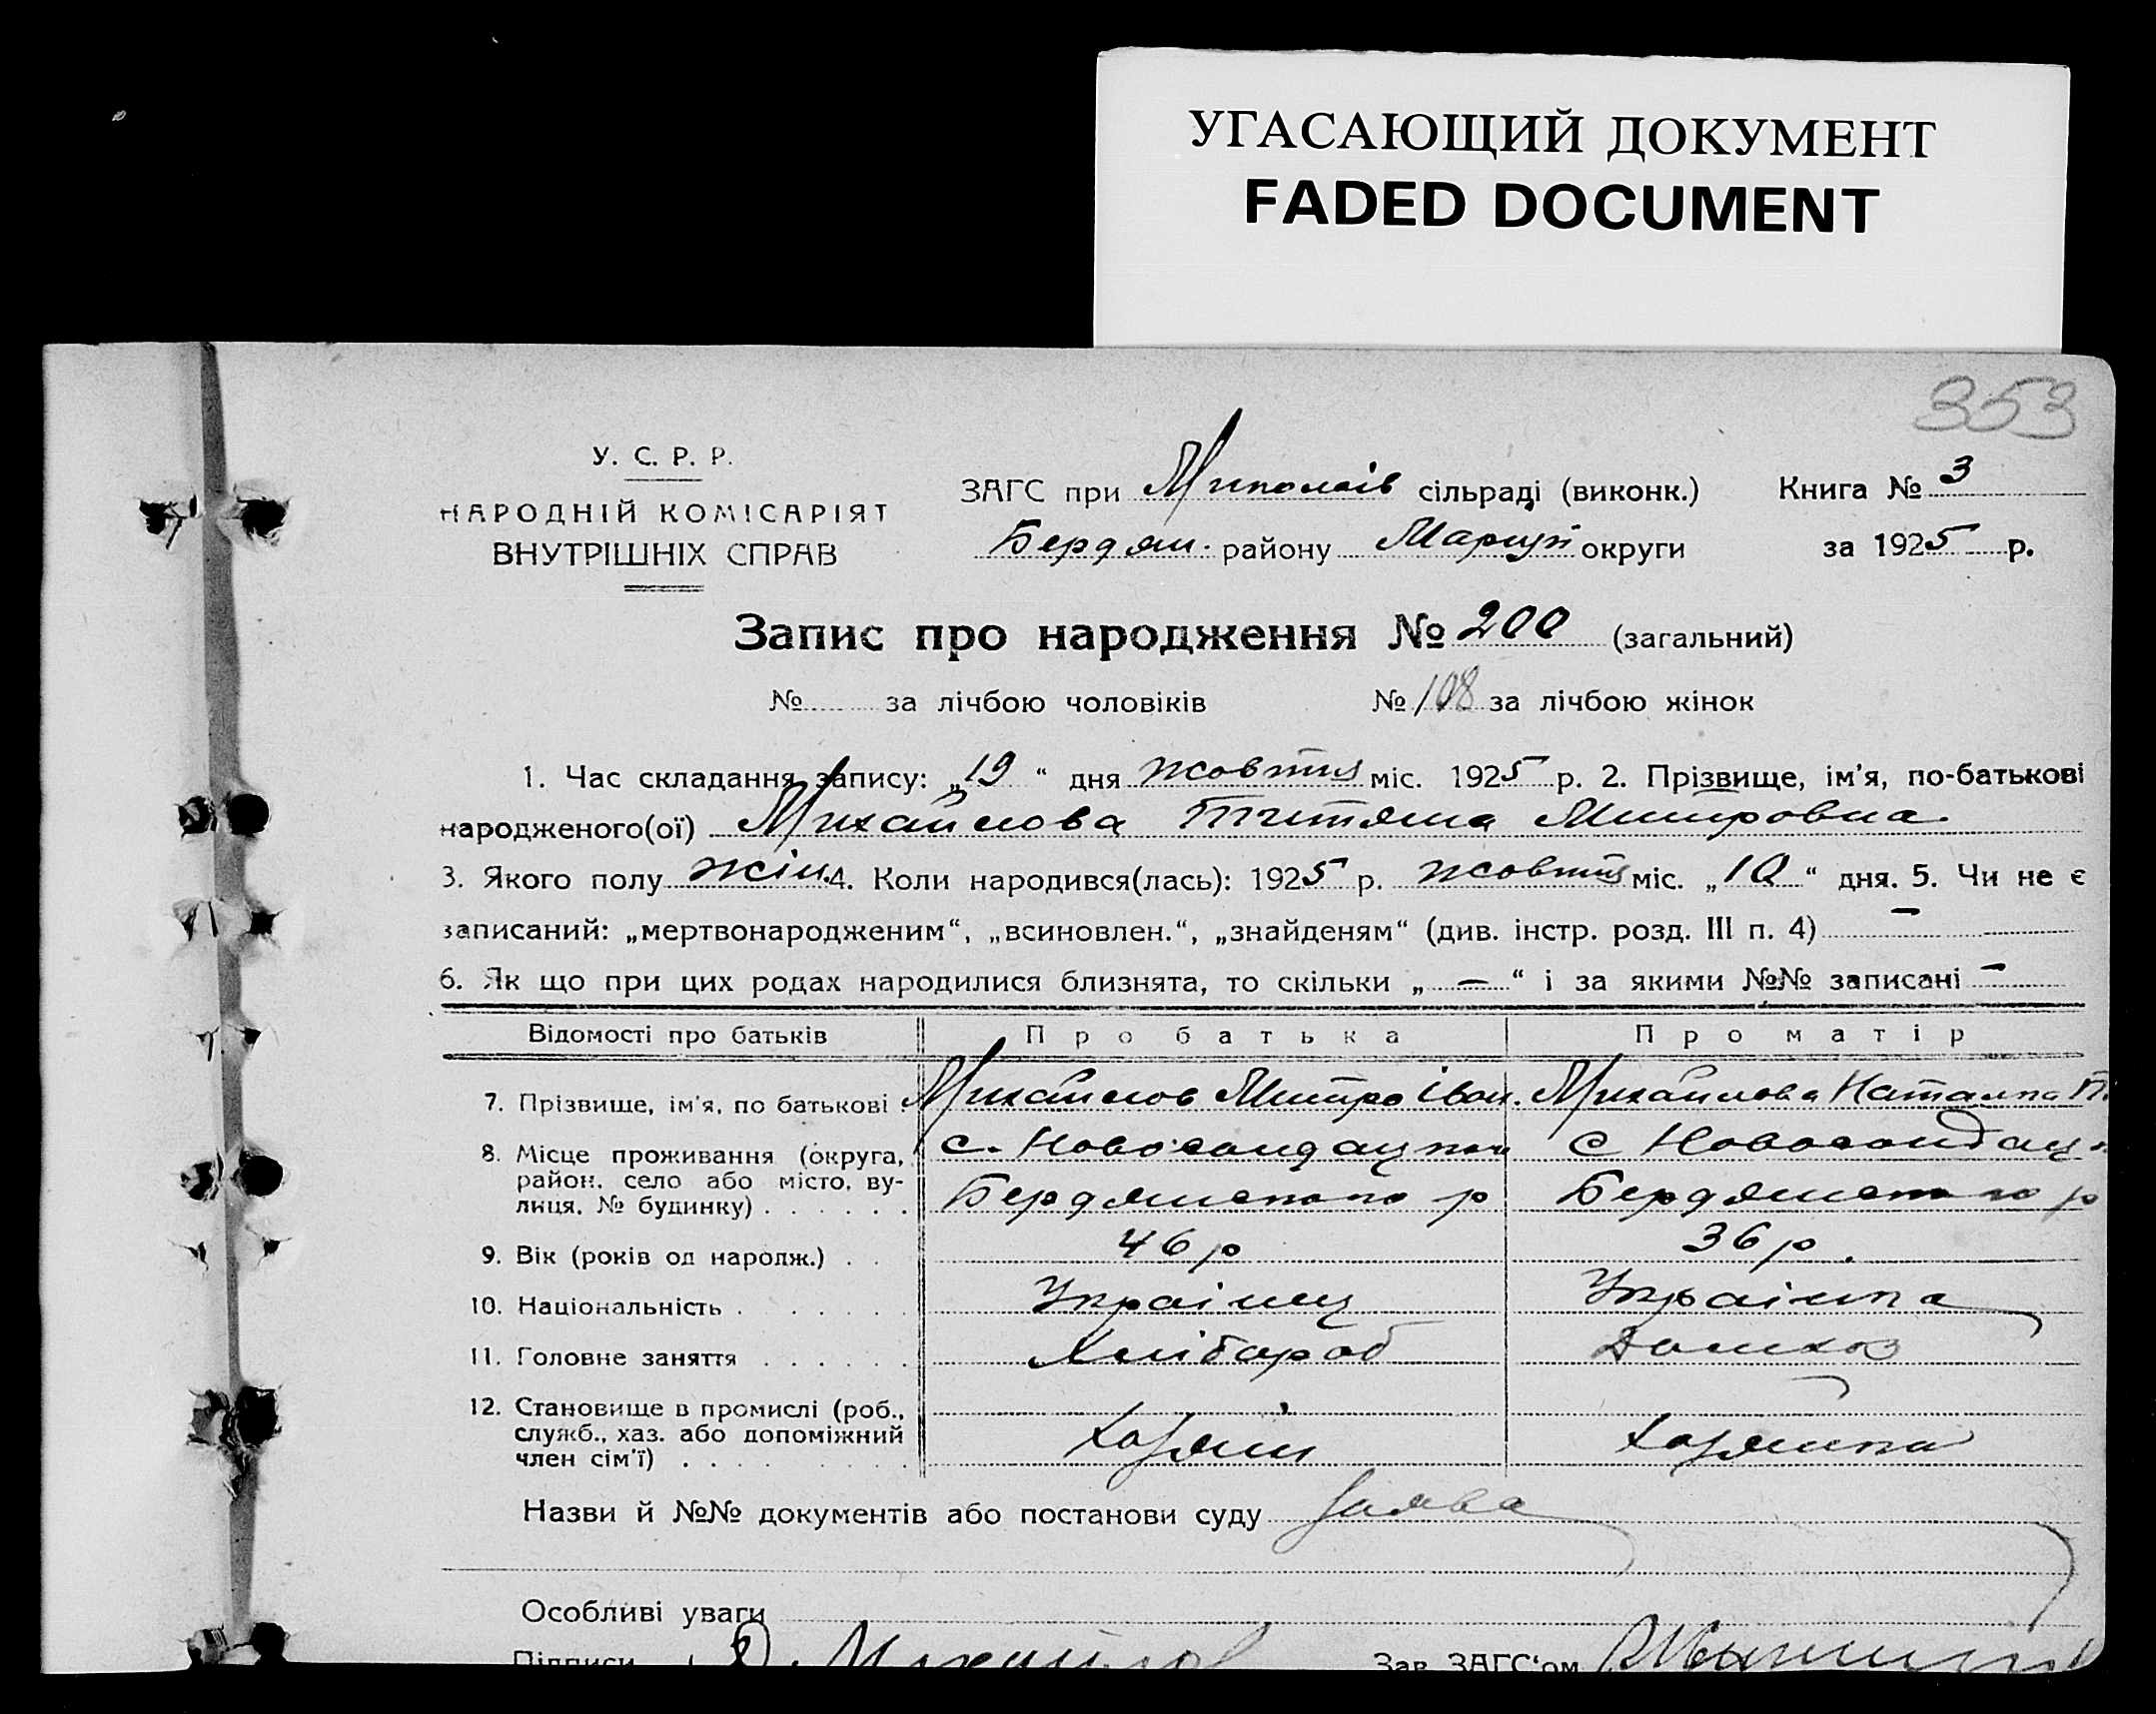 УГАСАЮЩИЙ ДОКУМЕНТ
FADED DOCUMENT
353
У. С. Р. Р.
НАРОДНІЙ КОМІСАРІЯТ
ВНУТРІШНІХ СПРАВ
ЗАГС при Миколаїв сільраді (виконк.) Книга № 3
Бердян. району Маріуп округи за 1925 р.
Запис про народження № 200 (загальний)
№ за лічбою чоловіків № 108 за лічбою жінок
1. Час складання запису: „19“ дня жовтня міс. 1925 р. 2. Прізвище, ім'я, по-батькові
народженого(ої) Михайлова Титяна Митровна
3. Якого полу жін. 4. Коли народився(лась): 1925 р. жовтня міс. „10“ дня. 5. Чи не є
записаний: „мертвонародженим“, „всиновлен.“, „знайденям“ (див. інстр. розд. III п. 4) —
6. Як що при цих родах народилися близнята, то скільки „—“ і за якими №№ записані —
Відомості про батьків Про батька Про матір
7. Прізвище, ім'я, по батькові . Михайлов Митро Іван. Михайлова Наталка П.
8. Місце проживання (округа, с. Новосолдацки с Новосолдац
район, село або місто, ву-
лиця, № будинку) . . . . . . Бердянського р Бердянського р
9. Вік (років од народж.) . . 46 р 36 р.
10. Національність . . . . . . Українец Українка
11. Головне заняття . . . . . . Хлібороб Домхоз
12. Становище в промислі (роб.,
служб., хаз. або допоміжний Хазяїн Хазяйка
член сім'ї) . . . . . . . . .
Назви й №№ документів або постанови суду Заява
Особливі уваги
Підписи Михайлов Зав. ЗАГС'ом